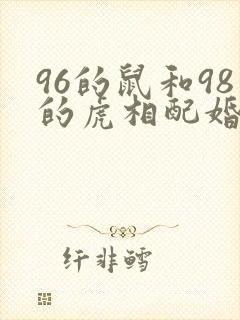 96的鼠和98
的虎相配婚
纤非鳕